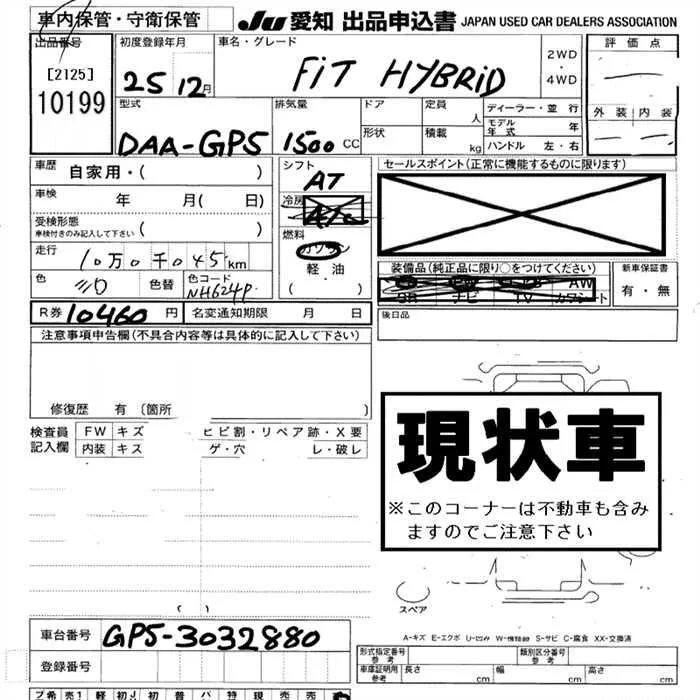 車内保管・守衛保管
JU 愛知 出品申込書 JAPAN USED CAR DEALERS ASSOCIATION
出品番号
[2125]
10199
初度登録年月
25 12月
車名・グレード
FiT HYBRiD
2WD
・
4WD
評価点
外装 内装
型式
DAA-GP5
排気量
1500 CC
ドア
形状
定員
人
積載
kg
ディーラー・並行
モデル年式 年
ハンドル 左・右
車歴 自家用・( )
車検 年 月( 日)
受検形態
車検付きのみ記入して下さい ( )
走行 10万0千045km
色
色替
色コード
NH624P
シフト
AT
冷房
燃料
ガソリン
・
軽油
( ・ )
セールスポイント(正常に機能するものに限ります)
装備品(純正品に限り○をつけてください)
SR ナビ TV カワシート
AW
新車保証書
有・無
R券 10460 円 名変通知期限 月 日
後日品
注意事項申告欄(不具合内容等は具体的に記入して下さい)
修復歴 有 〔箇所 〕
検査員
記入欄
FW キズ ヒビ割・リペア跡・X要
内装 キズ ゲ・穴 レ・破レ
現状車
※このコーナーは不動車も含み
ますのでご注意下さい
( )
スペア
A-キズ E-エクボ U-凹み W-補修跡 S-サビ C-腐食 XX-交換済
車台番号 GP5-3032880
登録番号
形式指定番号
参考
類別区分番号
参考
車庫証明用
参考
長さ cm 幅 cm 高さ cm